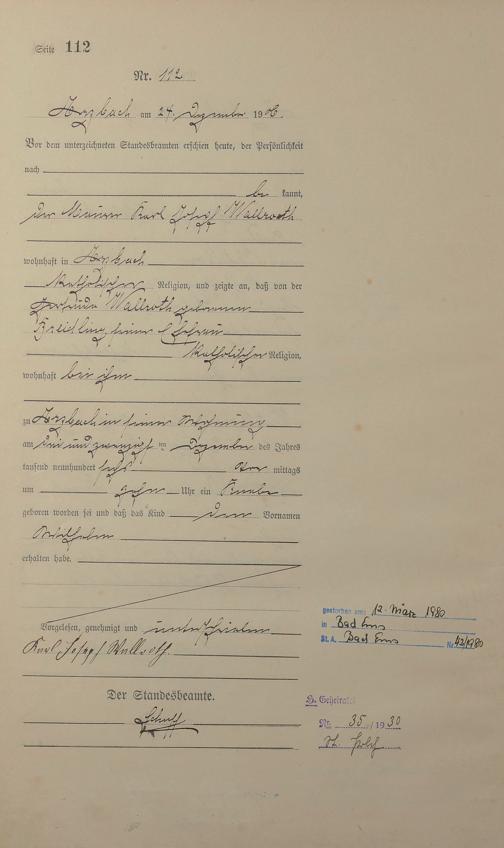 Seite 112
Nr. 112
Arzbach am 24. Dezember 1906.
Vor dem unterzeichneten Standesbeamten erschien heute, der Persönlichkeit
nach
be kannt,
der Maurer Karl Josef Wallroth
wohnhaft in Arzbach
katholischer Religion, und zeigte an, daß von der
Gertruda Wallroth geborenen
seiner Ehefrau
katholischer Religion,
wohnhaft bei ihm
zu Arzbach in seiner Wohnung
am drei und zwanzigsten Dezember des Jahres
tausend neunhundert sechs Vor mittags
um zehn Uhr ein Knabe
geboren worden sei und daß das Kind den Vornamen
Wilhelm
erhalten habe.
Vorgelesen, genehmigt und unterschrieben
Karl Josef Wallroth.
Der Standesbeamte.
gestorben am: 12. März 1980
in Bad Ems
St. A. Bad Ems Nr. 42/1980
H. Geheiratet
Nr. 35 / 1930